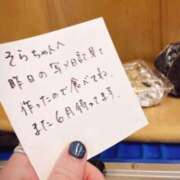 そらちゃんへ
昨日の写メ日記見て
作ったので食べてね。
また6月待ってます。